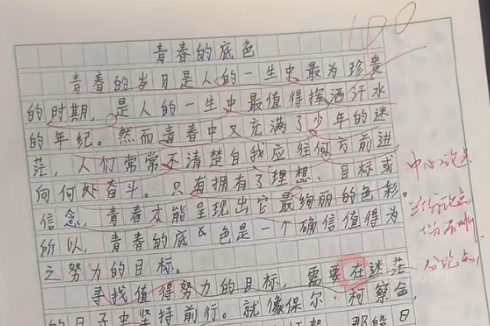 100
青春的底色
青春的岁月是人的一生中最为珍贵
的时期，是人的一生中最值得挥洒汗水
的年纪。然而青春中又充满了少年的迷
茫，人们常常不清楚自我应往何方前进
向何处奋斗。只有拥有了理想、目标或
信念，青春才能呈现出它最绚丽的色彩。
所以，青春的底色是一个确信值得为
之努力的目标。
寻找值得努力的目标，需要在迷茫
的日子中坚持前行。就像保尔·柯察金
中心论点
分论点